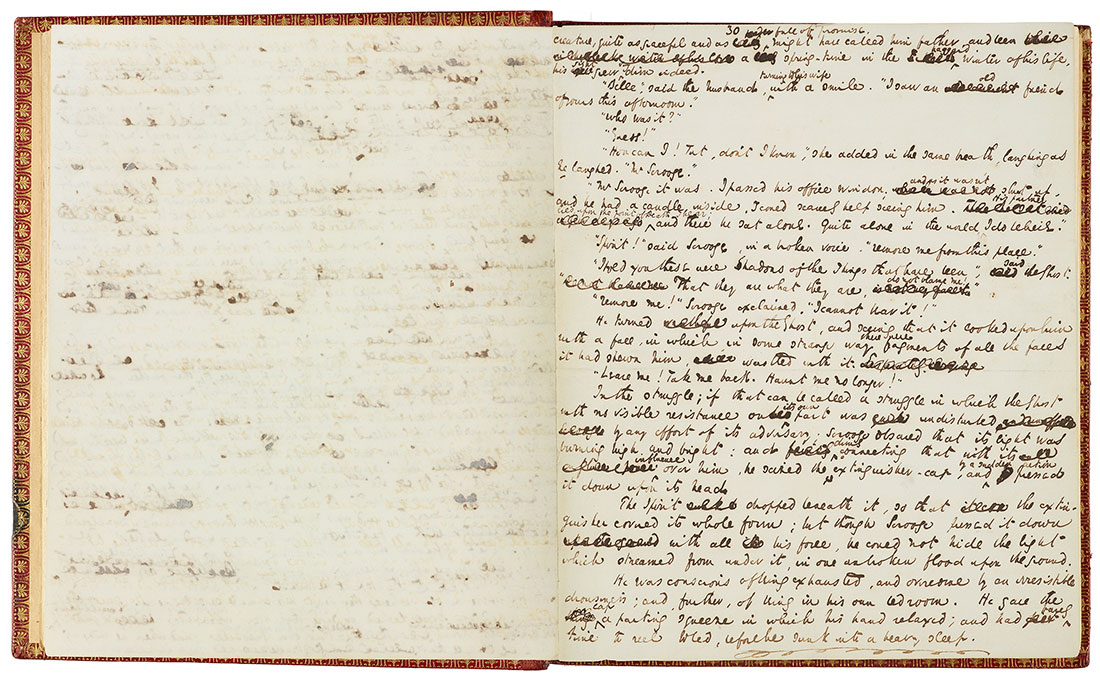 30
creature, quite as graceful and as full of promise, might have called him father, and been
a spring-time in the haggard winter of his life,
his sight grew dim indeed.
"Belle," said the husband, turning to his wife with a smile. "I saw an old friend
of yours this afternoon."
"Who was it?"
"Guess!"
"How can I! Tut, don't I know," she added in the same breath, laughing as
he laughed. "Mr Scrooge."
"Mr Scrooge it was. I passed his office window, and as it was not shut up,
and he had a candle inside, I could scarcely help seeing him. His partner
lies upon the point of death I hear; and there he sat alone. Quite alone in the world, I do believe."
"Spirit!" said Scrooge, in a broken voice. "remove me from this place."
"I told you these were Shadows of the Things that have been," said the Ghost.
"That they are what they are, do not blame me!"
"remove me!" Scrooge exclaimed, "I cannot bear it!"
He turned upon the Ghost, and seeing that it looked upon him
with a face, in which in some strange way there were fragments of all the faces
it had shewn him, wrestled with it.
"Leave me! Take me back. Haunt me no longer!"
In the struggle; if that can be called a struggle in which the Ghost
with no visible resistance on its own part was undisturbed
by any effort of its adversary; Scrooge observed that its light was
burning high and bright: and dimly connecting that with its
influence over him, he seized the extinguisher-cap, and by a sudden action pressed
it down upon its head.
The Spirit dropped beneath it, so that the extin-
guisher covered its whole form; but though Scrooge pressed it down
with all his force, he could not hide the light
which streamed from under it, in one unbroken flood upon the ground.
He was conscious of being exhausted, and overcome by an irresistible
drowsiness; and further, of being in his own bedroom. He gave the
cap a parting squeeze in which his hand relaxed; and had barely
time to reel to bed, before he sunk into a heavy sleep.